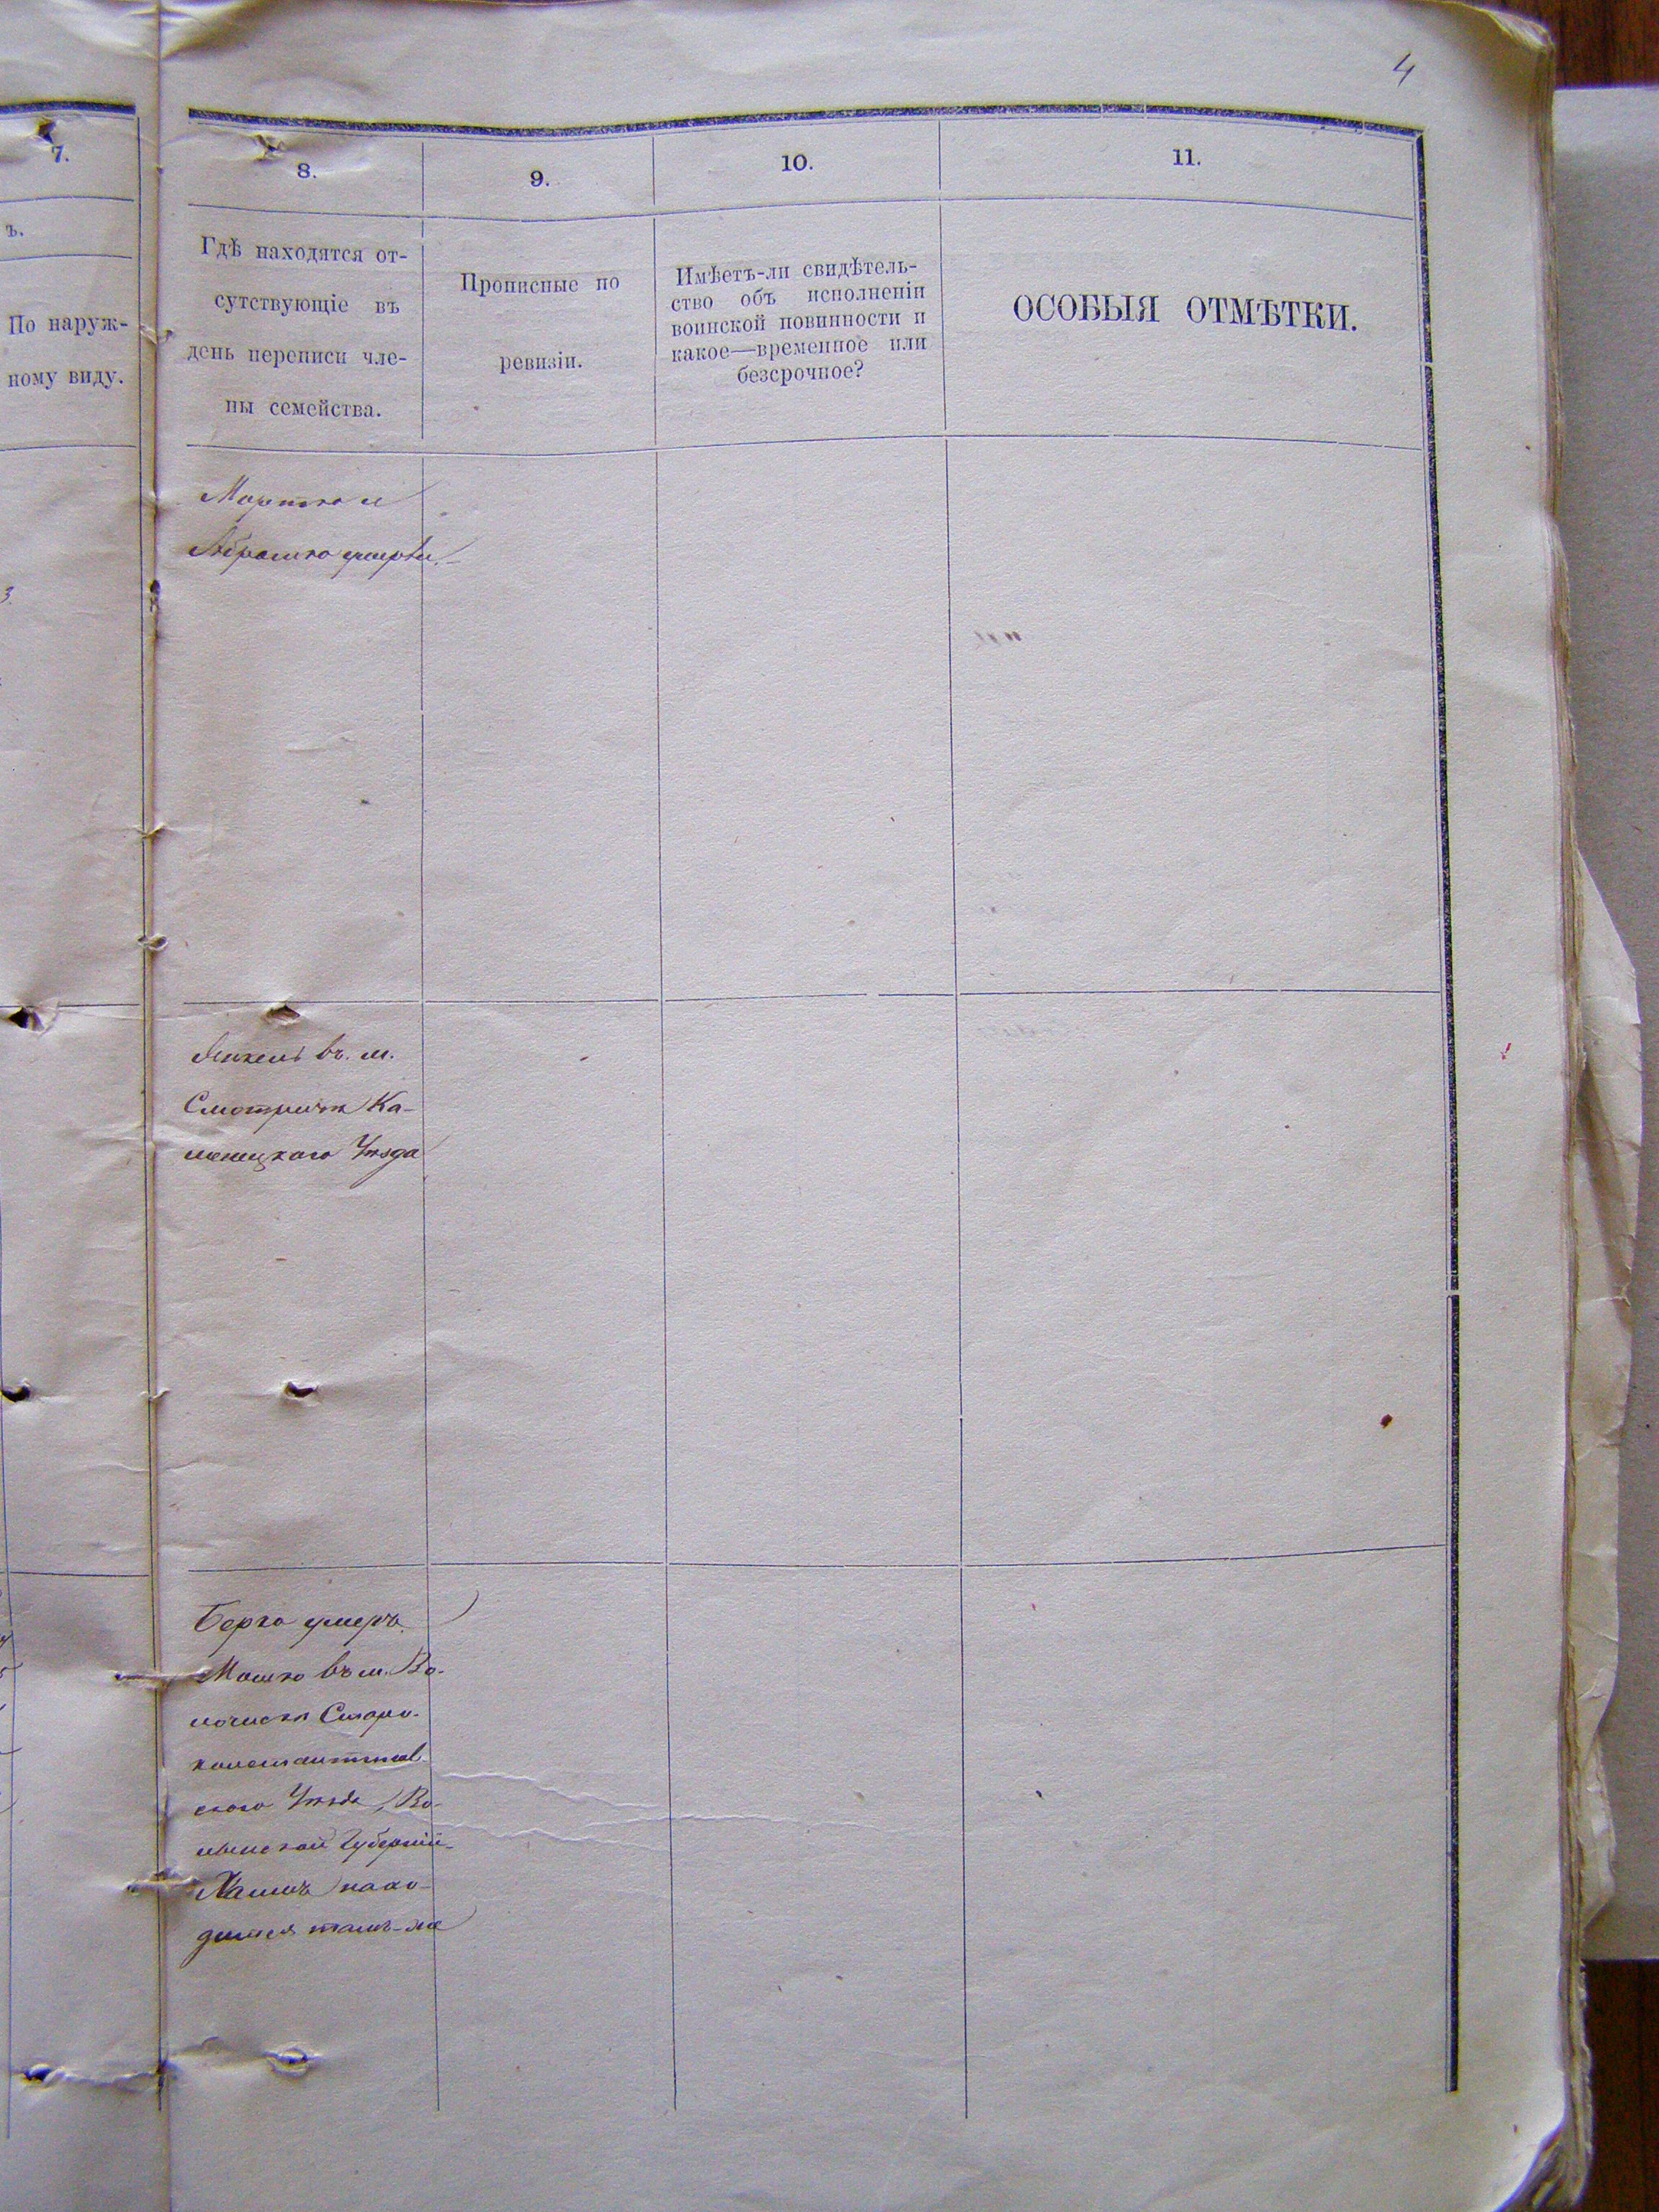 4
7.
8.
9.
10.
11.
ъ.
По наруж-
ному виду.
Гдѣ находятся от-
сутствующіе въ
день переписи чле-
ны семейства.
Прописные по
ревизіи.
Имѣетъ-ли свидѣтель-
ство объ исполненіи
воинской повинности и
какое—временное или
безсрочное?
ОСОБЫЯ ОТМѢТКИ.
и
Абрамко умерли.
въ м.
Смотричѣ Ка-
менецкаго Уѣзда
Берко умеръ.
Мошко въ м. Во-
лочискѣ Старо-
константинов-
скаго Уѣзда, Во-
лынской Губерніи
Хаимъ нахо-
дится тамъ-же